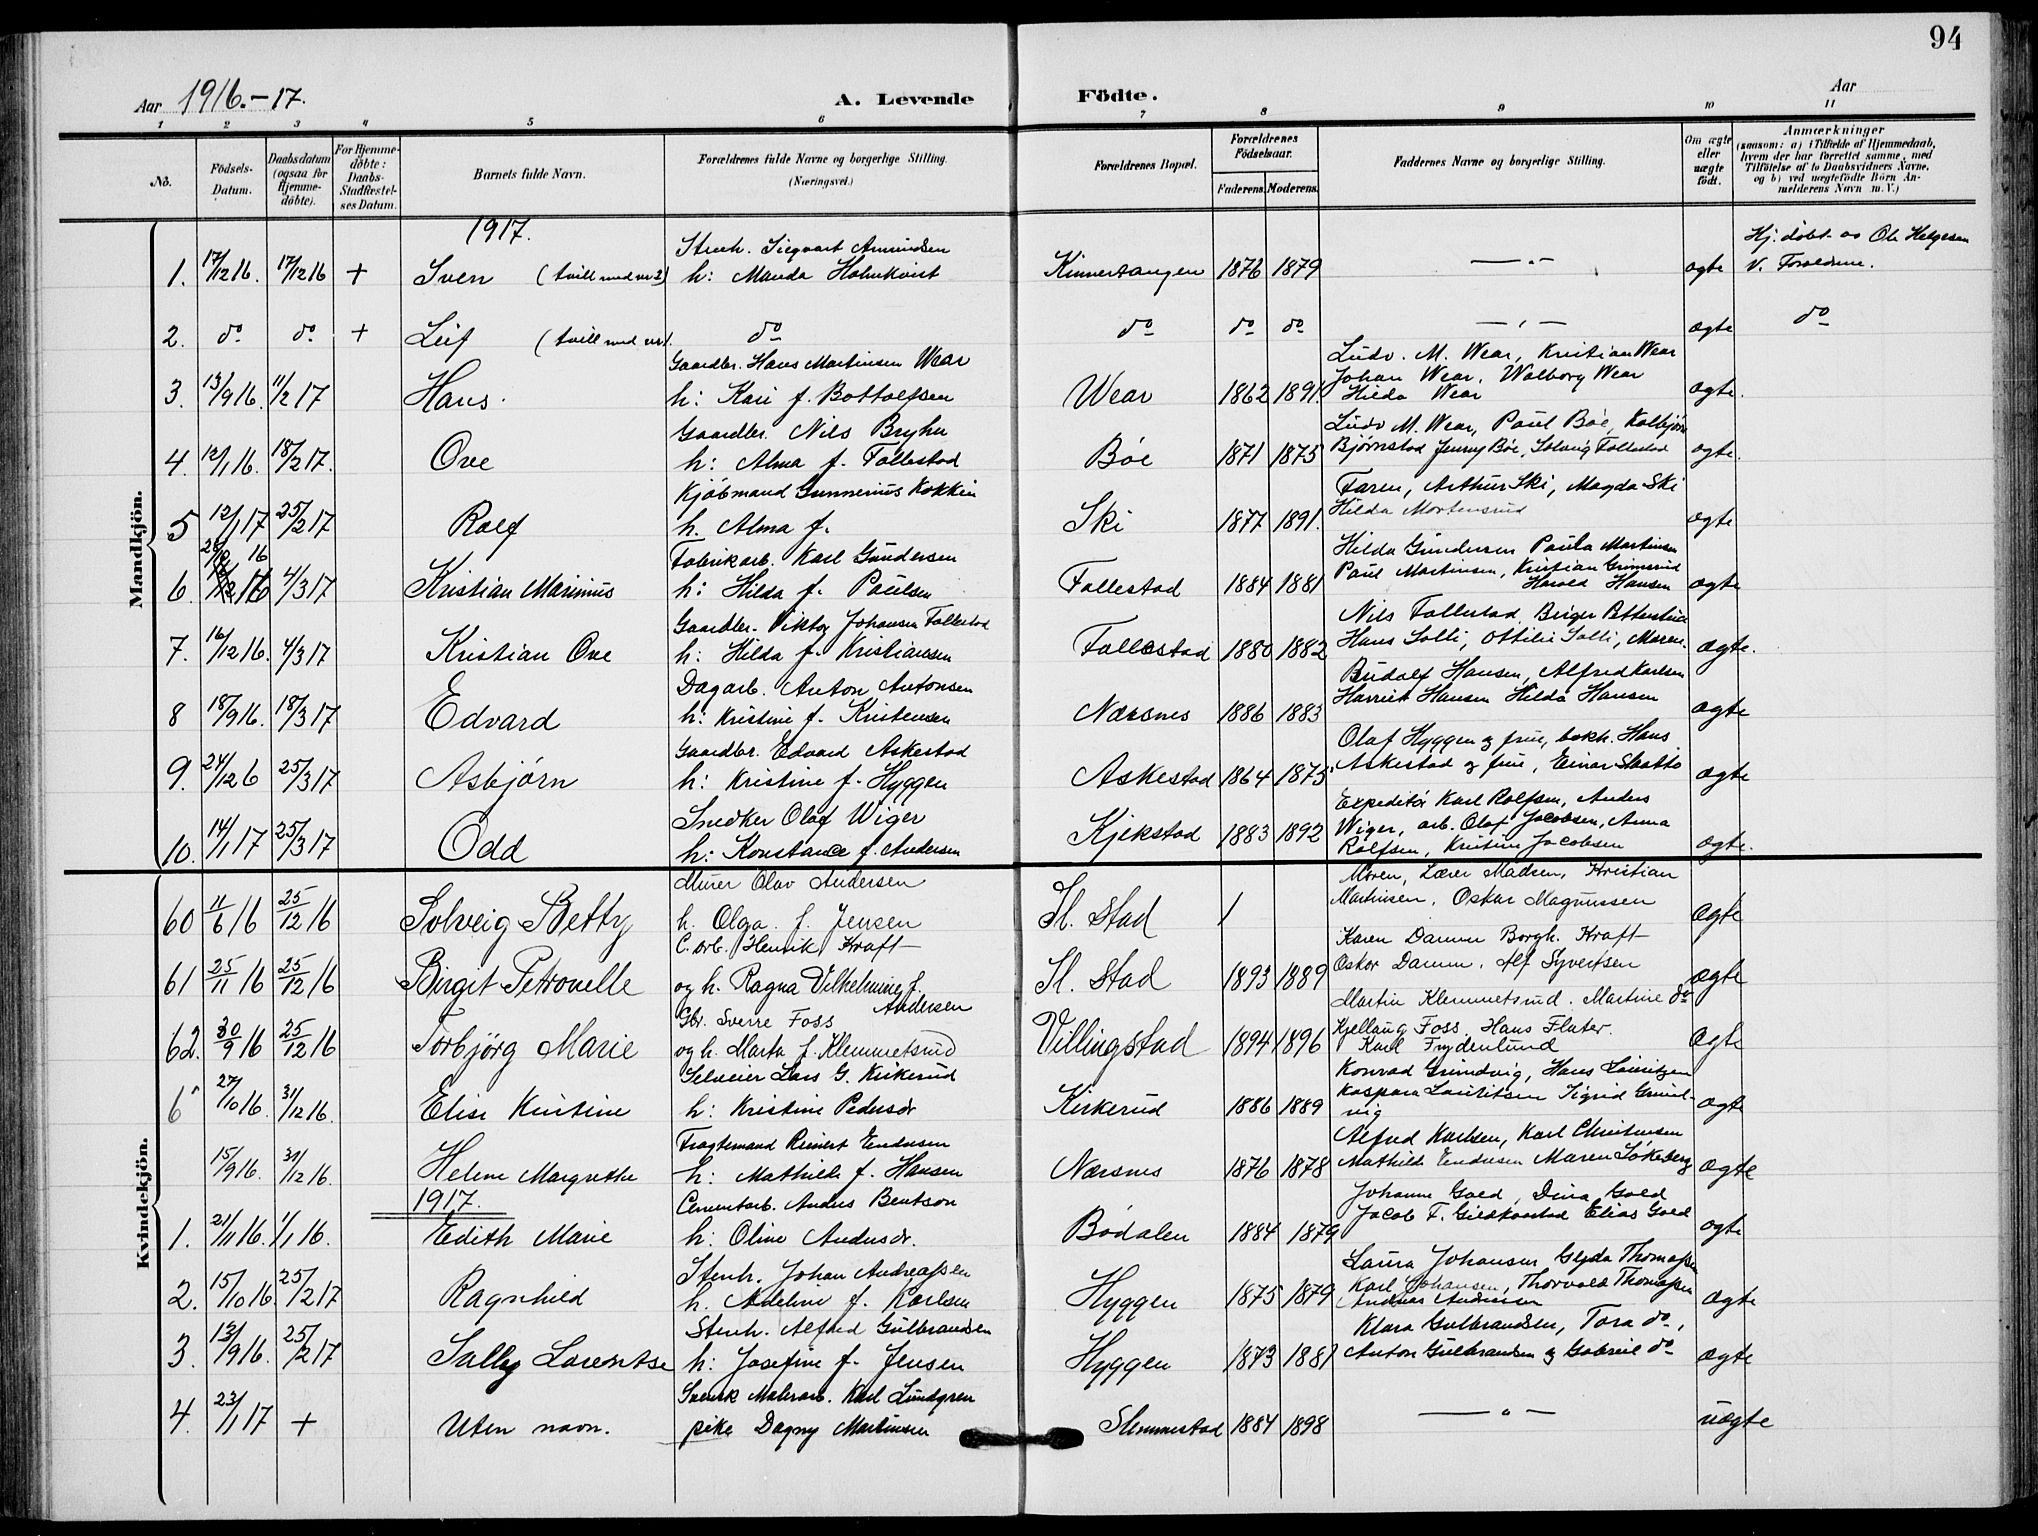 94
Aar 1916.-17.
A. Levende Födte.
Aar
1 2 3 4 5 6 7 8 9 10 11
No.
Födsels-Datum.
Daabsdatum (ogsaa for Hjemme-döbte).
For Hjemme-döbte: Daabs-Stadfestel-ses Datum.
Barnets fulde Navn.
Forældrenes fulde Navne og borgerlige Stilling. (Næringsvei.)
Forældrenes Bopæl.
Forældrenes Födselsaar.
Faderens. Moderens.
Faddernes Navne og borgerlige Stilling.
Om ægte eller uægte födt.
Anmærkninger (saasom: a) i Tilfælde af Hjemmedaab, hvem der har forrettet samme, med Tilföielse af to Daabsvidners Navne, og b) ved uægtefödte Börn An-melderens Navn m. V.)
Mandkjön.
1917.
Stenh. Sigvart Amundsen Hj. døbt av Ole Helgesen
1. 17/12 16. 17/12 16 + Sven (tvill med nr 2) h: Manda Holmkvist Kinnertangen 1876 1879 —„— ægte V. Forældrene.
2. do do + Leif (tvill med nr 1. do do do do —„— ægte do
Gaardbr. Hans Martinsen Wear Ludv. M. Wear, Kristian Wear
3. 13/9 16. 11/2 17 Hans. h: Kari f. Bottolfsen Wear 1862 1891. Johan Wear, Walborg Wear ægte.
Hilda Wear
Gaardbr. Nils Bryhn Ludv M. Wear, Paul Bøe, Kolbjørn
4. 12/1 16. 18/2 17. Ove h: Alma f. Follestad Bøe 1871 1875 Bjørnstad Jenny Bøe, Solveig Follestad ægte.
Kjøbmand Gunnerius Kokkin Faren, Arthur Ski, Magda Ski
5 12/1 17 25/2 17 Rolf h. Alma f. Ski 1877 1891. Hilda Mortensrud ægte
16
Fabrikarb. Karl Gundersen Hilda Gundersen Paula Martinsen
6. 4/3 17 Kristian Marinius h: Hilda f. Paulsen Follestad 1884 1881 Paul Martinsen, Kristian Grimsrud ægte
Harald Hansen
Gaardbr. Viktor Johansen Follestad Nils Follestad, Birger
7. 16/12 16. 4/3 17 Kristian Ove h: Hilda f. Kristiansen Follestad 1880 1882 Hans Solli, Ottilie Solli, Moren. ægte.
Dagarb. Anton Antonsen Rudolf Hansen, Alfred Karlsen
8 18/9 16. 18/3 17 Edvard h: Kristine f. Kristensen Nærsnes 1886 1883 Harriet Hansen Hilda Hansen ægte
Gaardbr. Edvard Askestad Olaf Hyggen og frue, bokh. Hans
9. 24/12 6 25/3 17 Asbjørn h: Kristine f. Hyggen Askestad 1864 1875 Askestad og frue, Einar Slaatto ægte
Snedker Olaf Wiger Expeditør Karl Rolfsen, Anders
10. 14/1 17 25/3 17 Odd h: Konstance f. Andersen Kjekstad 1883 1892 Wiger, arb. Olaf Jacobsen, Anna ægte.
Rolfsen, Kristine Jacobsen
Kvindekjön.
Murer Olav Andersen Moren, Lærer Madsen, Kristian
60 11/6 16 25/12 16 Solveig Betty h. Olga f. Jensen Sl. Stad / Martinsen, Oskar Magnussen ægte
C. arb. Henrik Kraft Karen Damm Borgh. Kraft
61 25/11 16 25/12 16 Birgit Petronelle og h. Ragna Vilhelmine f. Andersen Sl. Stad 1893 1889 Oskar Damm, Alf Syvertsen ægte
Gbr. Sverre Foss Martin Klemmetsrud. Martine do
62. 30/9 16 25/12 16 Torbjörg Marie og h. Marta f. Klemmetsrud Villingstad 1894 1896 Kjellaug Foss, Hans Flater. ægte
Karl Frydenlund
Selveier Lars G. Kirkerud Konrad Grundvig, Hans Lauritzen
6 27/10 16. 31/12 16. Elise Kristine h: Kristine Pedersdr Kirkerud 1886 1889 Kaspara Lauritsen Sigrid Grund-vig ægte
Fragtemand Reinert Endresen Alfred Karlsen, Karl Christensen
15/9 16. 31/12 16. Helene Margrethe h: Mathilde f. Hansen Nærsnes 1876 1878 Mathilde Endresen Maren Løkeberg ægte
1917.
Cementarb. Anders Bentson Johanne Goed, Dina Goed
1. 21/11 16. 1/1 16. Edith Marie h: Oline Andersdr. Bødalen 1884 1879 Jacob F. Gildkorstad Elias Goed ægte
Stenh. Johan Andreassen Laura Johansen, Thomassen
2. 15/10 16. 25/2 17 Ragnhild h. Adeline f. Karlsen Hyggen 1875 1879 Karl Johansen, Thorvald Thomassen ægte
Andreas Andersen
Stenh. Alfred Gulbrandsen Klara Gulbrandsen, Tora do,
3. 13/9 16. 25/2 17 Sally Lorentse h: Josefine f. Jensen Hyggen 1873 1881 Anton Gulbrandsen og Gabriel do ægte
Svensk Malerarb. Karl Lundgren
4. 23/1 17 + Uten navn. pike Dagny Martinsen Slemmestad 1884 1898 —„— uægte